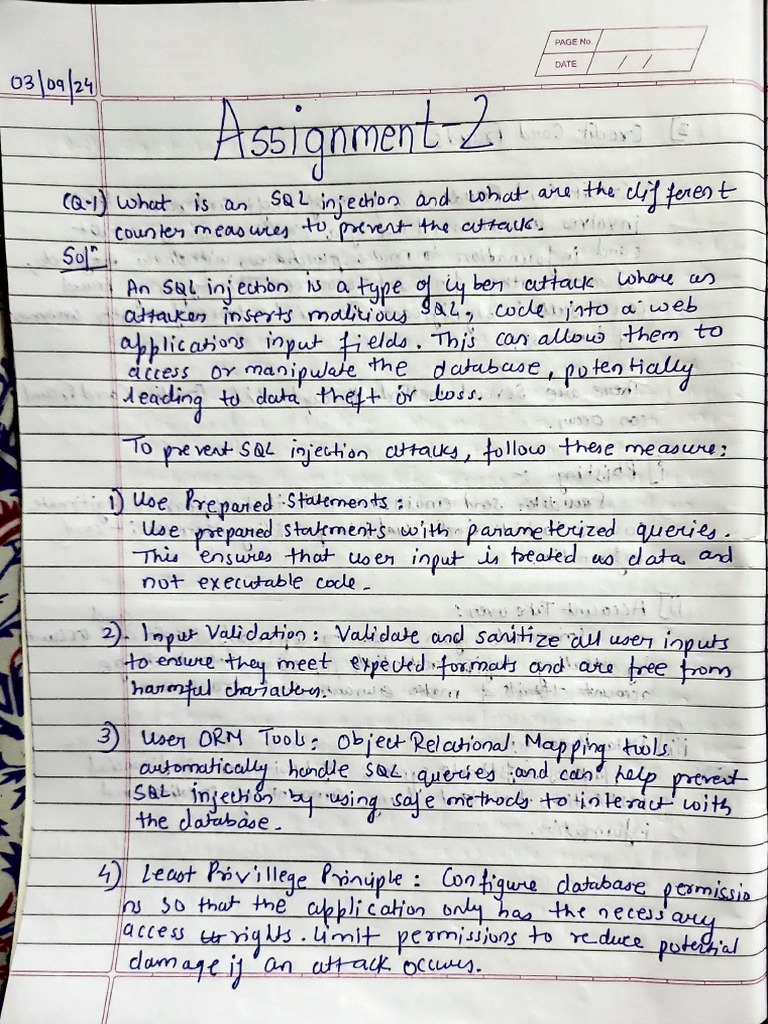 PAGE No
DATE / /
03/09/24
Assignment-2
(Q-1) What is an SQL injection and what are the different
counter measures to prevent the attack.
Solⁿ
An SQL injection is a type of cyber attack where an
attacker inserts malicious SQL, code into a web
applications input fields. This can allow them to
access or manipulate the database, potentially
leading to data theft or loss.
To prevent SQL injection attacks, follow these measure:
1) Use Prepared Statements:
Use prepared statements with parameterized queries.
This ensures that user input is treated as data and
not executable code.
2). Input Validation: Validate and sanitize all user inputs
to ensure they meet expected formats and are free from
harmful characters.
3) User ORM Tools: Object Relational Mapping tools
automatically handle SQL queries and can help prevent
SQL injection by using safe methods to interact with
the database.
4) Least Privillege Principle: Configure database permissio
ns so that the application only has the necessary
access rights. Limit permissions to reduce potential
damage if an attack occurs.